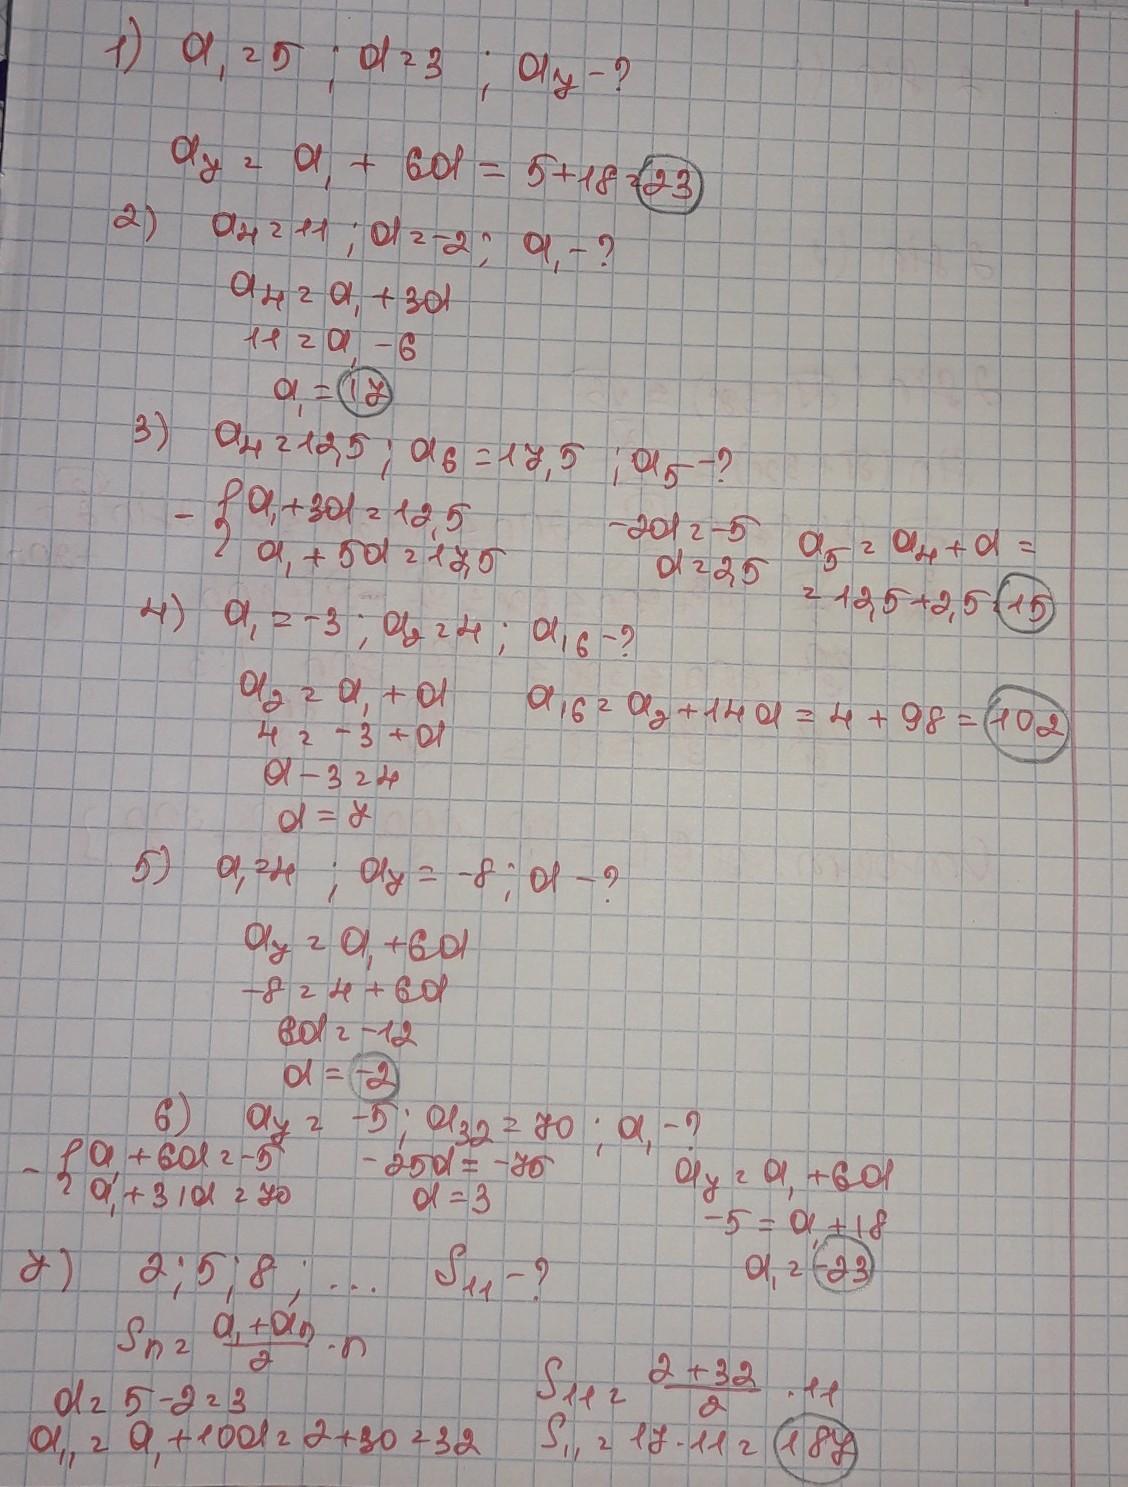 1) a₁ = 5 ; d = 3 ; a₇ - ?
a₇ = a₁ + 6d = 5 + 18 = 23
2) a₄ = 11 ; d = -2 ; a₁ - ?
a₄ = a₁ + 3d
11 = a₁ - 6
a₁ = 17
3) a₄ = 12,5 ; a₆ = 17,5 ; a₅ - ?
- { a₁ + 3d = 12,5
a₁ + 5d = 17,5
-2d = -5
d = 2,5
a₅ = a₄ + d =
= 12,5 + 2,5 = 15
4) a₁ = -3 ; a₂ = 4 ; a₁₆ - ?
a₂ = a₁ + d
4 = -3 + d
d - 3 = 4
d = 7
a₁₆ = a₂ + 14d = 4 + 98 = 102
5) a₁ = 4 ; a₇ = -8 ; d - ?
a₇ = a₁ + 6d
-8 = 4 + 6d
6d = -12
d = -2
6) a₇ = -5 ; a₃₂ = 70 ; a₁ - ?
- { a₁ + 6d = -5
a₁ + 31d = 70
-25d = -75
d = 3
a₇ = a₁ + 6d
-5 = a₁ + 18
a₁ = -23
7) 2 ; 5 ; 8 ; ... S₁₁ - ?
Sₙ = (a₁ + aₙ)/2 · n
d = 5 - 2 = 3
a₁₁ = a₁ + 10d = 2 + 30 = 32
S₁₁ = (2 + 32)/2 · 11
S₁₁ = 17 · 11 = 187